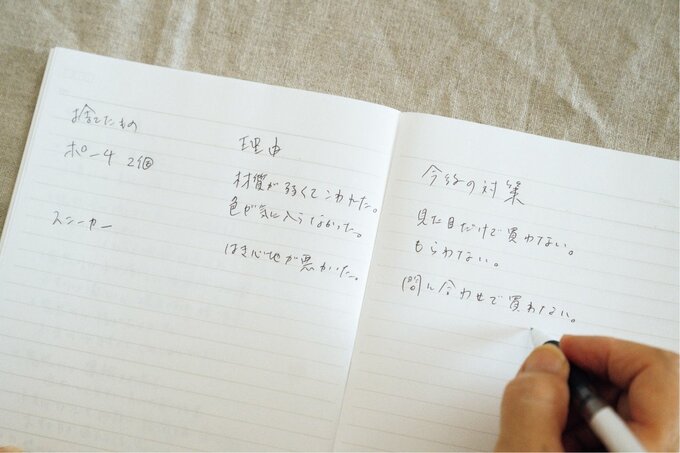 捨てたもの
理由
今後の対策
ポーチ 2個
材質が弱くてこわれた。
色が気に入らなかった。
見た目だけで買わない。
もらわない。
スニーカー
はき心地が悪かった。
間に合わせで買わない。